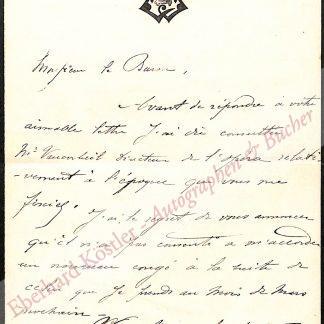 Monsieur le Baron,
Avant de répondre à votre
aimable lettre j'ai dû consulter
Mr Vaucorbeil directeur de l'opéra relati-
-vement à l'époque que vous me
fixiez. J'ai le regret de vous annoncer
qu'il n'a pas consenti à m'accorder
un nouveau congé à la suite de
celui que je prends au mois de Mars
prochain.
Eberhard Köstler - Autographen & Bücher